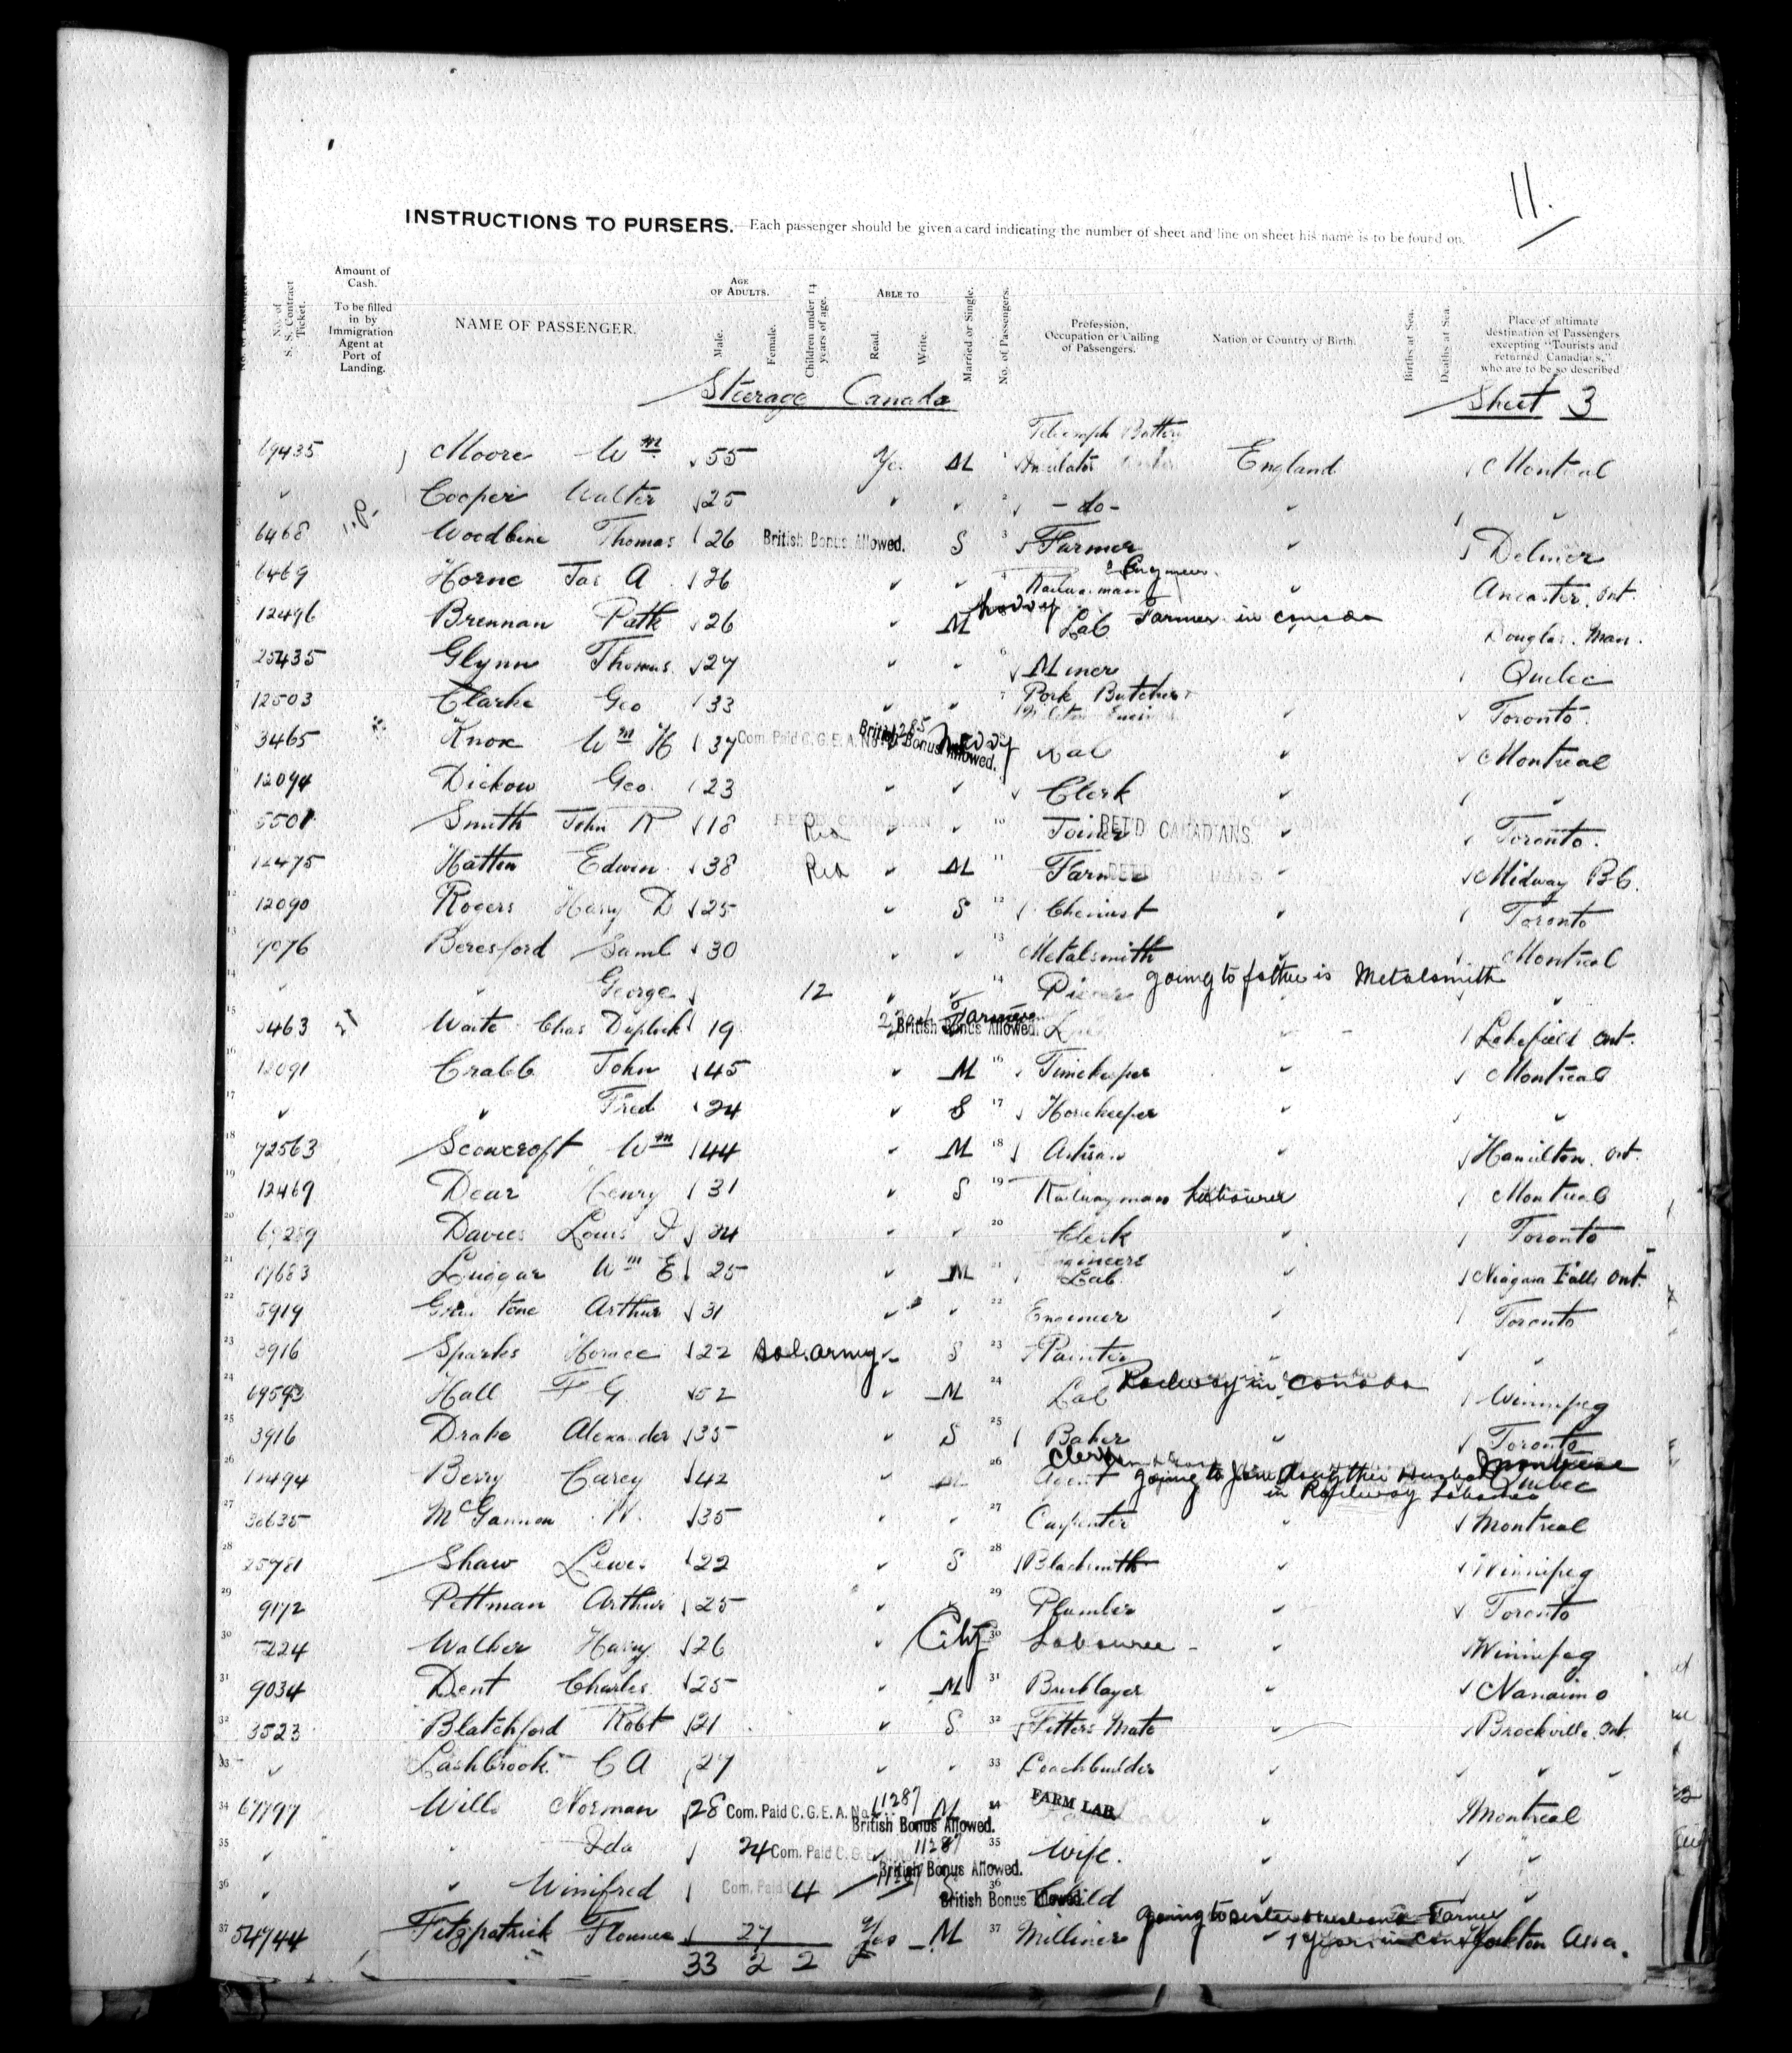 11.
INSTRUCTIONS TO PURSERS.—Each passenger should be given a card indicating the number of sheet and line on sheet his name is to be found on.
No. of S. S. Contract Ticket. Amount of Cash. To be filled in by Immigration Agent at Port of Landing. NAME OF PASSENGER. AGE OF ADULTS. Male. Female. Children under 14 years of age. ABLE TO Read. Write. Married or Single. No. of Passengers. Profession, Occupation or Calling of Passengers. Nation or Country of Birth. Births at Sea. Deaths at Sea. Place of ultimate destination of Passengers excepting "Tourists and returned Canadians," who are to be so described
Steerage Canada Sheet 3
1 69435 Moore Wm 55 Yes M 1 Telegraph Battery Insulator England Montreal
2 Cooper Walter 25 2 - do -
3 6468 Woodbine Thomas 26 British Bonus Allowed. S 3 Farmer Delmer
4 6469 Horne Jas A 26 Railwayman Engineer Ancaster, Ont.
5 12496 Brennan Patk 26 M Lab Farmer in Canada Douglas. Man.
6 25435 Glynn Thomas 27 6 Miner Quebec
7 12503 Clarke Geo 33 7 Pork Butcher Toronto
8 3465 Knox Wm H 37 Com. Paid C.G.E.A. No. 11285 British Bonus Allowed. Lab Montreal
9 12094 Dickow Geo. 23 Clerk
10 5501 Smith John R 18 RET'D CANADIAN 10 Joiner RET'D CANADIANS Toronto.
11 12475 Hatton Edwin 38 M 11 Farmer Midway B.C.
12 12090 Rogers Harry D 25 S 12 Chemist Toronto
13 9076 Beresford Saml 30 13 Metalsmith Montreal
14 " George 12 14 going to father is Metalsmith
15 3463 Waite Chas 19 Farmer British Bonus Allowed. Lakefield Ont.
16 12091 Crabb John 45 M 16 Timekeeper Montreal
17 " Fred 24 S 17 Horsekeeper
18 72563 Scowcroft Wm 44 M 18 Artisan Hamilton. Ont.
19 12469 Dear Henry 31 S 19 Railwayman Labourer Montreal
20 Davies Louis 34 20 Clerk Toronto
21 17683 Luggar Wm E 25 M 21 Engineers Lab. Niagara Falls Ont.
22 3919 Arthur 31 22 Engineer Toronto
23 3916 Sparkes Horace 22 Sal. army S 23 Painter
24 69593 Hall F G 52 M 24 Lab Railway in Canada Winnipeg
25 3916 Drake Alexander 35 S 25 Baker Toronto
26 12494 Berry Carey 42 M 26 Clerk Agent going to Join daughter Husband in Railway Labourer Montreal Quebec
27 30635 McGannon W. 35 27 Carpenter Montreal
28 25981 Shaw Lewis 22 S 28 Blacksmith Winnipeg
29 9172 Pettman Arthur 25 29 Plumber Toronto
30 5224 Walker Harry 26 City 30 Labourer Winnipeg
31 9034 Dent Charles 25 M 31 Bricklayer Nanaimo
32 3523 Blatchford Robt 21 S 32 Fitters Mate Brockville. Ont.
33 Lashbrook C A 27 33 Coachbuilder
34 67797 Wills Norman 28 Com. Paid C.G.E.A. No. 11287 British Bonus Allowed. M 34 FARM LAB Montreal
35 " Ida 24 Com. Paid C.G.E.A. No. 11287 British Bonus Allowed. 35 Wife.
36 " Winifred 4 Com. Paid 11287 British Bonus Allowed. 36 Child
37 54744 Fitzpatrick Florence 27 Yes M 37 Milliner going to sister Husband Farmer 1 year in Canada Yorkton Assa.
33 2 2